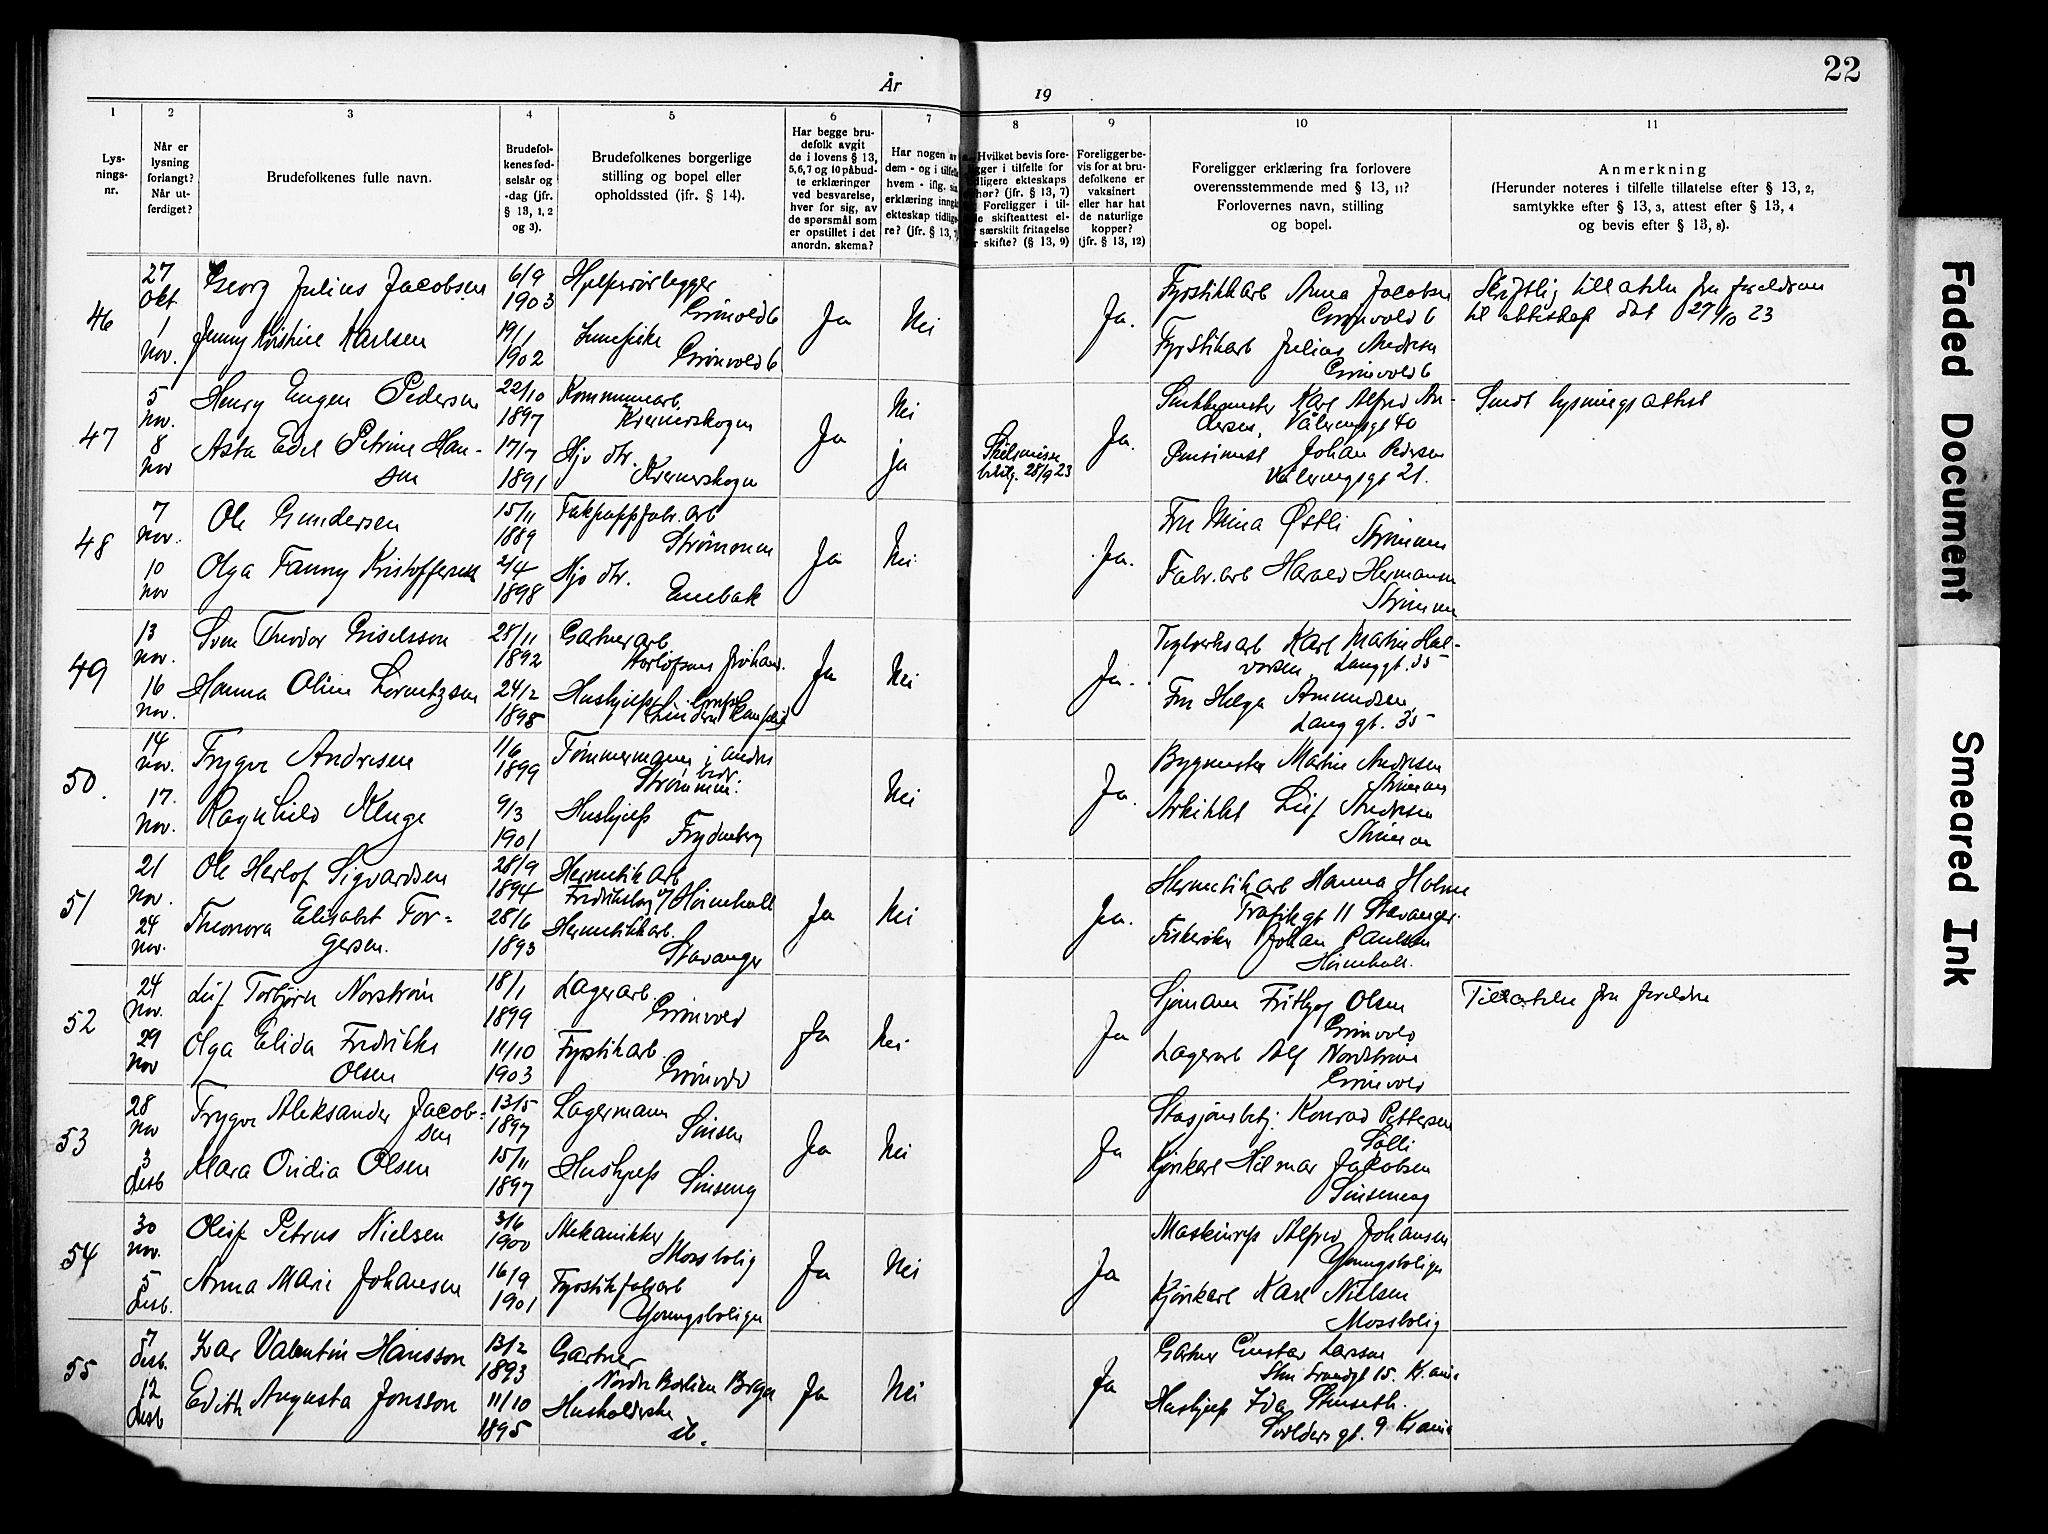 22
År
19
1 2 3 4 5 6 7 8 9 10 11
Lys-
nings-
nr.
Når er
lysning
forlangt?
Når ut-
ferdiget?
Brudefolkenes fulle navn.
Brudefol-
kenes fød-
selsår og
-dag (jfr.
§ 13, 1, 2
og 3).
Brudefolkenes borgerlige
stilling og bopel eller
opholdssted (jfr. § 14).
Har begge bru-
defolk avgit
de i lovens § 13,
5, 6, 7 og 10 påbud-
te erklæringer
ved besvarelse,
hver for sig, av
de spørsmål som
er opstillet i det
anordn. skema?
Har nogen
dem - og i tilfelle
hvem - iflg. sin
erklæring inngåt
ekteskap tidlige-
re? (jfr. § 13, 7)
Hvilket bevis fore-
ligger i tilfelle for
tidligere ekteskaps
ophør? (jfr. § 13, 7)
Foreligger i til-
felle skifteattest el-
særskilt fritagelse
skifte? (§ 13, 9)
Foreligger be-
vis for at bru-
defolkene er
vaksinert
eller har hat
de naturlige
kopper?
(jfr. § 13, 12)
Foreligger erklæring fra forlovere
overensstemmende med § 13, 11?
Forlovernes navn, stilling
og bopel.
Anmerkning
(Herunder noteres i tilfelle tillatelse efter § 13, 2,
samtykke efter § 13, 3, attest efter § 13, 4
og bevis efter § 13, 8).
46
27
Okt.
1
Nov.
Georg Julius Jacobsen
Jenny Kristine Karlsen
6/9
1903
19/1
1902
Hjelperørlegger
Grønvold 6
Grønvold 6
Ja
Nei
Ja.
Fyrstikkarb Anna Jacobsen
Grønvold 6
Fyrstikarb Julius Andresen
Grønvold 6
Skriftlig tillatelse fra foreldrene
til ekteskap dat 27/10 23
47
5
Nov.
8
Nov
Henry Eugen Pedersen
Asta Edel Petrine Han-
sen
22/10
1897
17/7
1891
Kommunearb.
Kværnerskogen
Hjv dtr.
Kvernerskogen
Ja
Nei
ja
Skilsmisse
bevilg. 28/9 23
Ja.
Karl Alfred An-
dersen, Vålerengsgt 40
Johan Pedersen
Vålerengsgt 21.
Sendt lysningsattest
48
7
Nov.
10
Nov
Ole Gundersen
Olga Fanny Kristoffersen
15/11
1889
2/4
1898
Takpappfabr. arb
Strømmen
Hjv dtr.
Enebak
Ja
Nei
Ja.
Fru Mina Østli
Strømmen
Fabr. arb Harald Hermansen
Strømmen
49
13
Nov.
16
Nov.
Sven Theodor Giselsson
Hanna Oline Lorentzsen
28/11
1892
24/2
1898
Gartnerarb
Hushjelp
Ja
Nei
Ja.
Teglverksarb Karl Martin Hal-
vorsen, Langgt. 35
Fru Helga Amundsen
Langgt. 35
50.
14
Nov.
17.
Nov.
Trygve Andresen
Ragnhild Kluge
1/6
1899
9/3
1901
Tømmermann i andres
bedr.
Strømmen.
Hushjelp
Frydenberg
Nei
Ja.
Bygmester Martin Andresen
Strømmen
Arkitekt Leif Andresen
Strømmen
51
21
Nov.
24
Nov.
Ole Herlof Sigvardsen
Theonora Elisabet Tor-
gersen.
28/9
1894
28/6
1893
Hermetikarb
Hermetikkarb.
Stavanger
Ja
Nei
Ja.
Hermetikarb Hanna Holme
Trafikgt 11 Stavanger.
Johan Paulsen
52
24
Nov.
29
Nov
Leif Torbjørn Norstrøm
Olga Elida Fredrikke
Olsen
18/1
1899
11/10
1903
Lagerarb.
Grønvold
Fyrstikarb.
Grønvold
Ja
Nei
Ja
Sjømann Fritjof Olsen
Grønvold
Lagerarb Alf Nordstrøm
Grønvold
Tillatelse fra foreldre
53
28
Nov
3
Desb
Trygve Aleksander Jacob-
sen
Klara Ovidia Olsen
13/5
1897
15/11
1897
Lagermann
Sinsen
Hushjelp
Sinseng
Ja
Nei
Ja
Stasjonsbetj. Konrad Pettersen
Solli
Kjørekarl Hilmar Jakobsen
Sinseneng
54
30
Nov.
5
Desb.
Oleif Petrus Nielsen
Anna Marie Johansen
3/6
1900
16/9
1901
Mekanikker
Mossbolig
Fyrstikfabarb
Youngsboligen
Ja
Nei
Ja
Maskinrep Alfred Johansen
Youngsboligen
Kjørekarl Karl Nielsen
Mossbolig
55
7
Desb.
12
Desb
Ivar Valentin Hansson
Edith Augusta Jonsson
13/2
1893
11/10
1895
Gartner
Husholderske
Ja
Nei
Ja
Gartner Gustav Larsson
Hushjelp Ida Stenseth.
9 Kr.ania
Faded Document
Smeared Ink